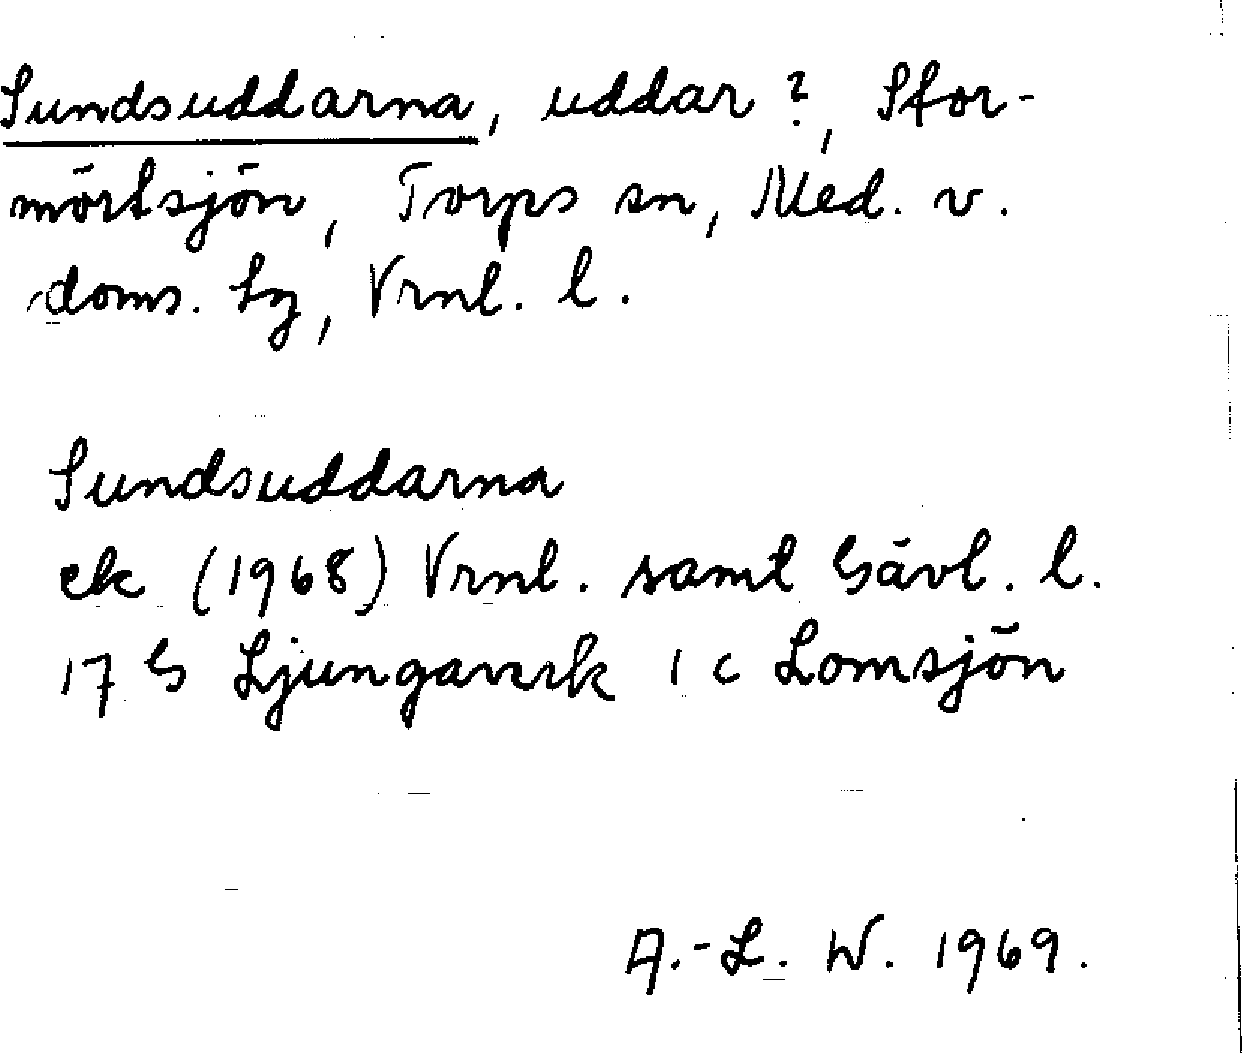 Sundsuddarna, uddar?, Stor-
mörtsjön, Torps sn, Med. v.
doms. tg, Vrnl. l.
Sundsuddarna
ek (1968) Vrnl. samt Gävl. l.
17 G Ljungaverk 1 c Lomsjön
A.-L. W. 1969.